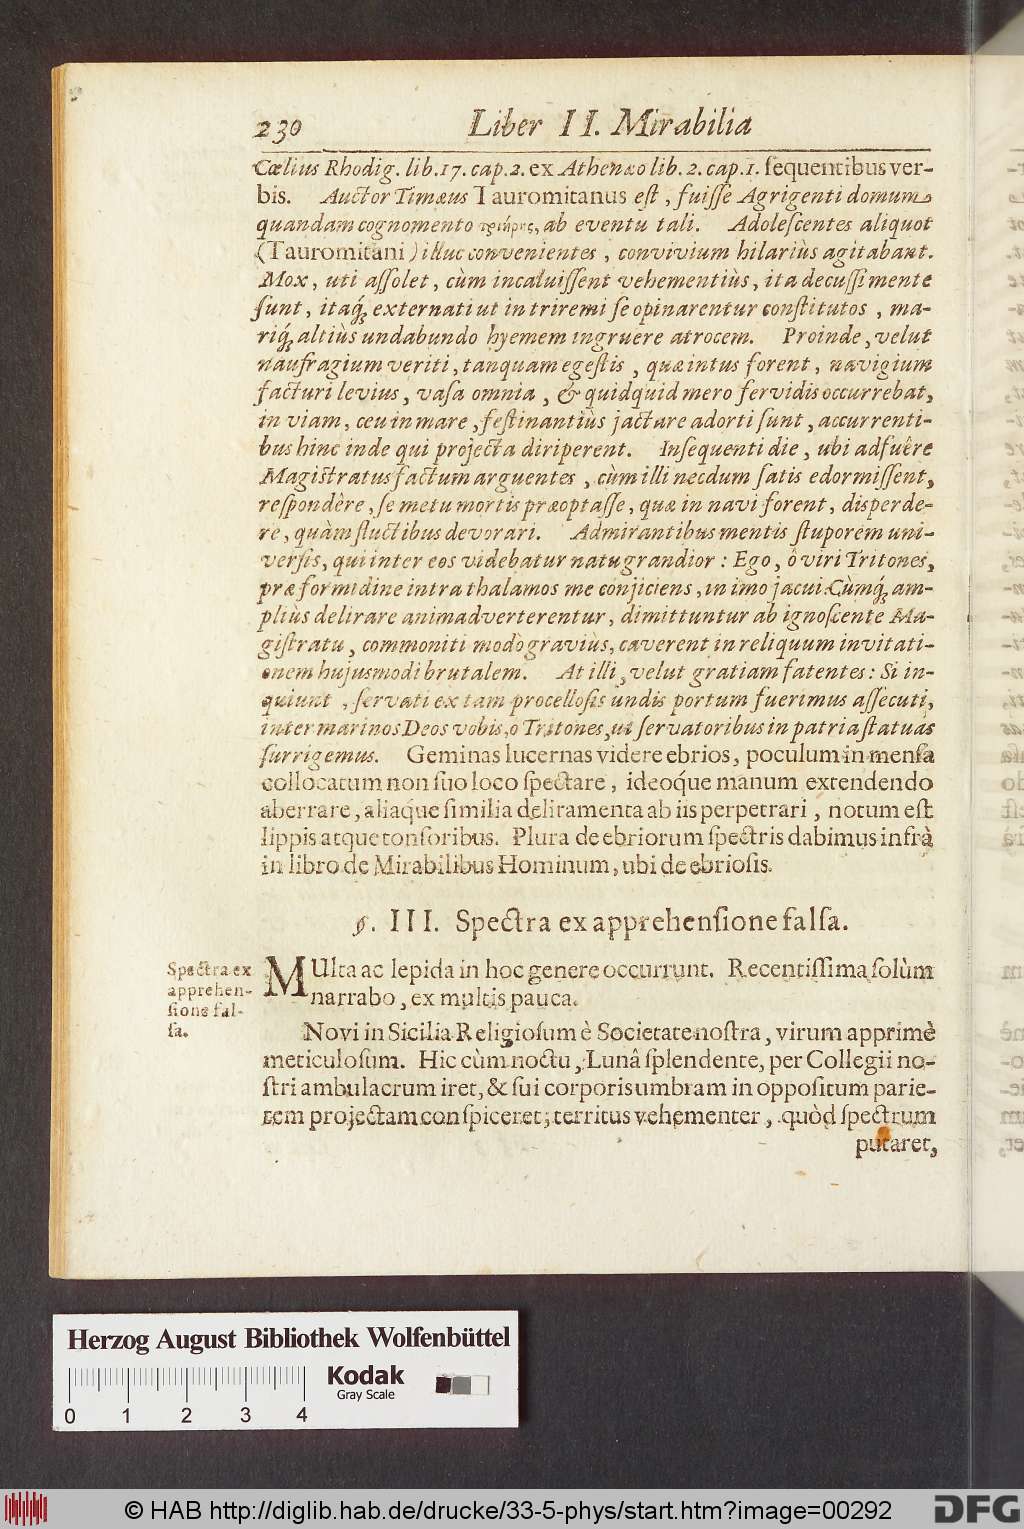 230 Liber II. Mirabilia
Cœlius Rhodig. lib. 17. cap. 2. ex Athenæo lib. 2. cap. 1. ſequentibus ver-
bis. Auctor Timæus Tauromitanus eſt, fuiſſe Agrigenti domum
quandam cognomento τριήρης, ab eventu tali. Adoleſcentes aliquot
(Tauromitani) illuc convenientes, convivium hilariùs agitabant.
Mox, uti aſſolet, cùm incaluiſſent vehementiùs, ita decuſſi mente
ſunt, itaq́; externati ut in triremi ſe opinarentur conſtitutos, ma-
riq́; altiùs undabundo hyemem ingruere atrocem. Proinde, velut
naufragium veriti, tanquam egeſtis, quæ intus forent, navigium
facturi levius, vaſa omnia, & quidquid mero fervidis occurrebat,
in viam, ceu in mare, feſtinantiùs jactare adorti ſunt, accurrenti-
bus hinc inde qui projecta diriperent. Inſequenti die, ubi adfuêre
Magiſtratus factum arguentes, cùm illi necdum ſatis edormiſſent,
reſpondère, ſe metu mortis præoptaſſe, quæ in navi forent, diſperde-
re, quàm fluctibus devorari. Admirantibus mentis ſtuporem uni-
verſis, qui inter eos videbatur natu grandior: Ego, ô viri Tritones,
præ formidine intra thalamos me conjiciens, in imo jacui. Cùmq́; am-
pliùs delirare animadverterentur, dimittuntur ab ignoſcente Ma-
giſtratu, commoniti modò graviùs, caverent in reliquum invitati-
onem hujusmodi brutalem. At illi, velut gratiam fatentes: Si in-
quiunt, ſervati ex tam procelloſis undis portum fuerimus aſſecuti,
inter marinos Deos vobis, o Tritones, ut ſervatoribus in patria ſtatuas
ſurrigemus. Geminas lucernas videre ebrios, poculum in menſa
collocatum non ſuo loco ſpectare, ideoq́ue manum extendendo
aberrare, aliaque ſimilia deliramenta ab iis perpetrari, notum eſt
lippis atque tonſoribus. Plura de ebriorum ſpectris dabimus infrà
in libro de Mirabilibus Hominum, ubi de ebrioſis.
§. III. Spectra ex apprehenſione falſa.
Spectra ex
apprehen-
ſione fal-
ſa.
MUlta ac lepida in hoc genere occurrunt. Recentiſſima ſolùm
narrabo, ex multis pauca.
Novi in Sicilia Religioſum è Societate noſtra, virum apprimè
meticuloſum. Hic cùm noctu, Lunâ ſplendente, per Collegii no-
ſtri ambulacrum iret, & ſui corporis umbram in oppoſitum parie-
tem projectam conſpiceret; territus vehementer, quòd ſpectrum
putaret,
Herzog August Bibliothek Wolfenbüttel
Kodak
Gray Scale
0 1 2 3 4
© HAB http://diglib.hab.de/drucke/33-5-phys/start.htm?image=00292
DFG